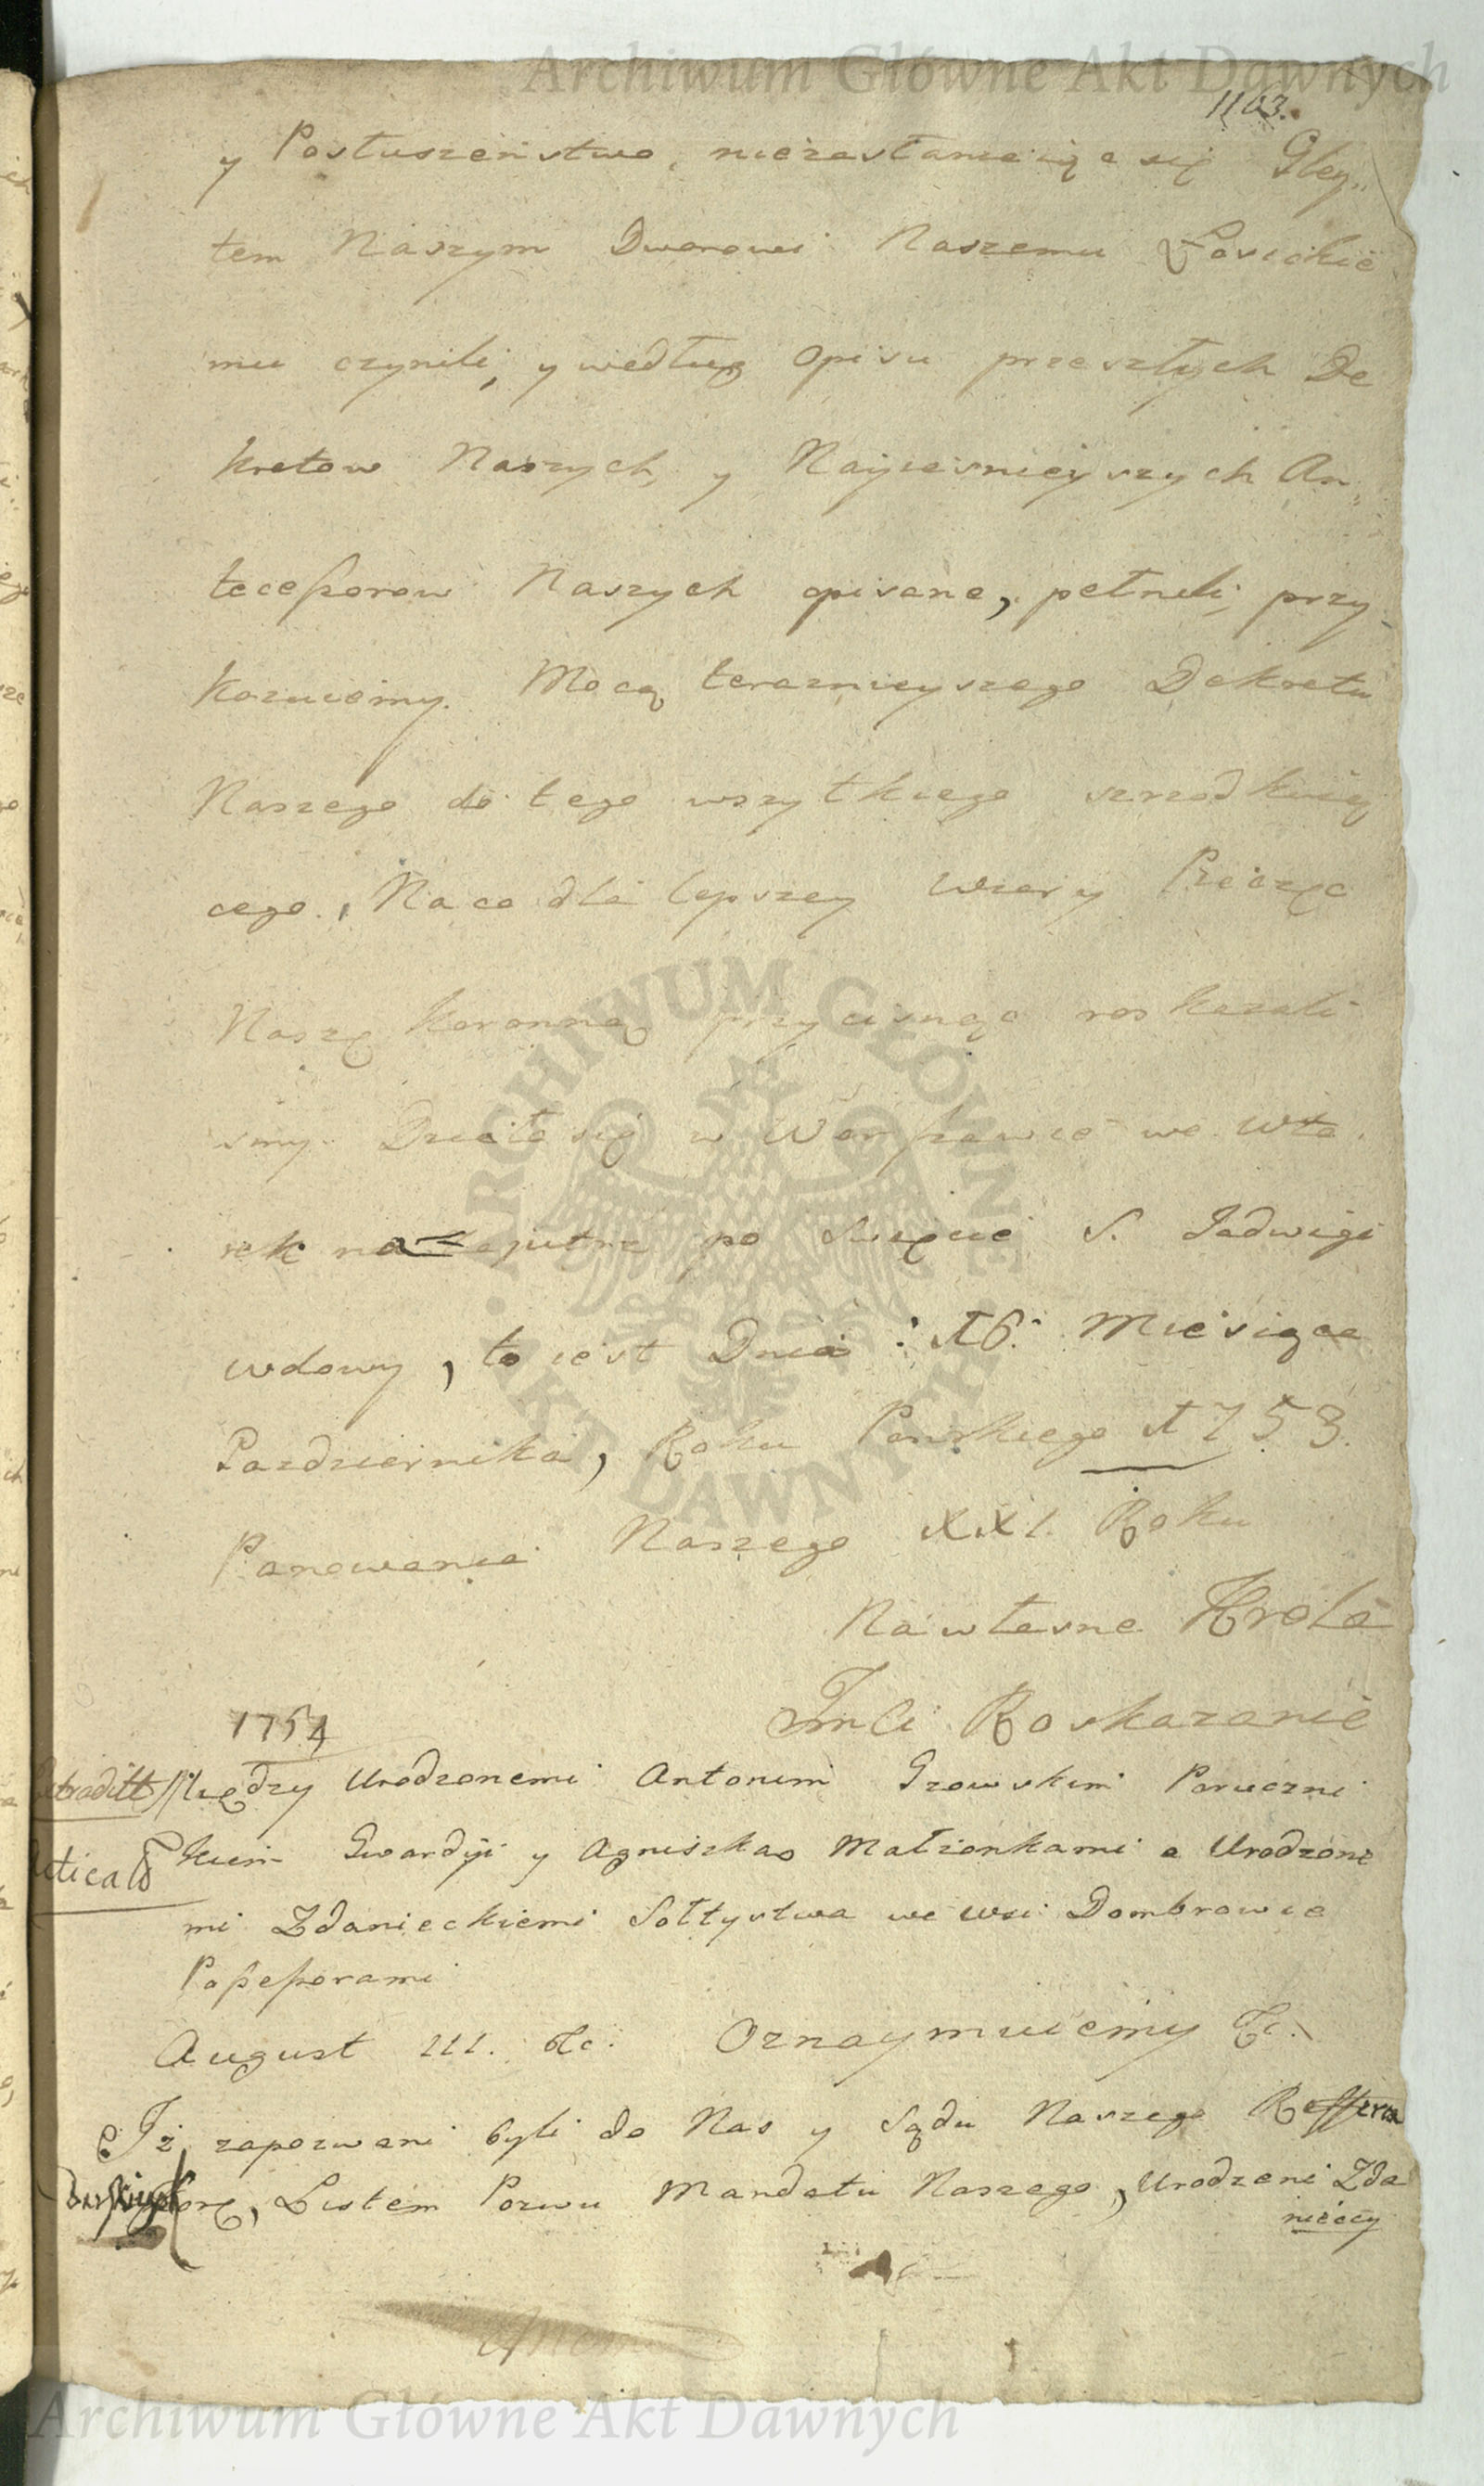 Archiwum Główne Akt Dawnych
1163.
y Posłuszenstwo, niezasłaniaiąc się Gley„
tem Naszym Dworowi Naszemu Łosickie
mu czynili, y według Opisu przeszłych De
kretow Naszych, y Nayiasnieyszych An„
tecessorow Naszych opisane, pełnili, przy„
kazuiemy. Mocą teraznieyszego Dekretu
Naszego do tego wszytkiego szrzodkuią
cego. Na co dla lepszey Wiary Pieczęc
Naszę Koronną przycisnąc roskazali
smy. Działo się w Warszawie we Wto
rek nazajutrz po Swięcie S. Jadwigi
wdowy, to iest Dnia 16. Miesiąca
Pazdziernika, Roku Panskiego 1753.
Panowania Naszego XXI. Roku
Na własne Krola
Jmci Roskazanie
1754
Między Urodzonemi Antonim Growskim Poruczni
kiem Gwardyi y Agnieszką Małżonkami a Urodzone
mi Zdanieckiemi Sołtystwa we Wsi Dombrowie
Possessorami
August III. &c. Oznaymuiemy &c.
Iż zapozwani byli do Nas y Sądu Naszego Refferen
darskiego Listem Pozwu Mandatu Naszego, Urodzeni Zda
nieccy
ARCHIWUM GŁÓWNE AKT DAWNYCH
Archiwum Główne Akt Dawnych